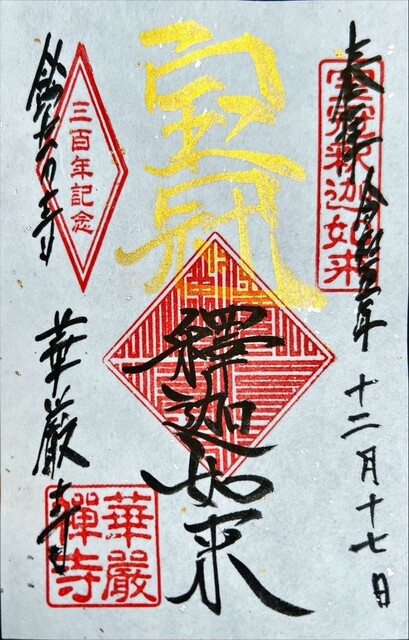 奉拝 令和五年 十二月十七日
寶冠釈迦如来
宝冠
釋迦如来
三百年記念
鈴虫の寺
華厳寺
華嚴
禪寺